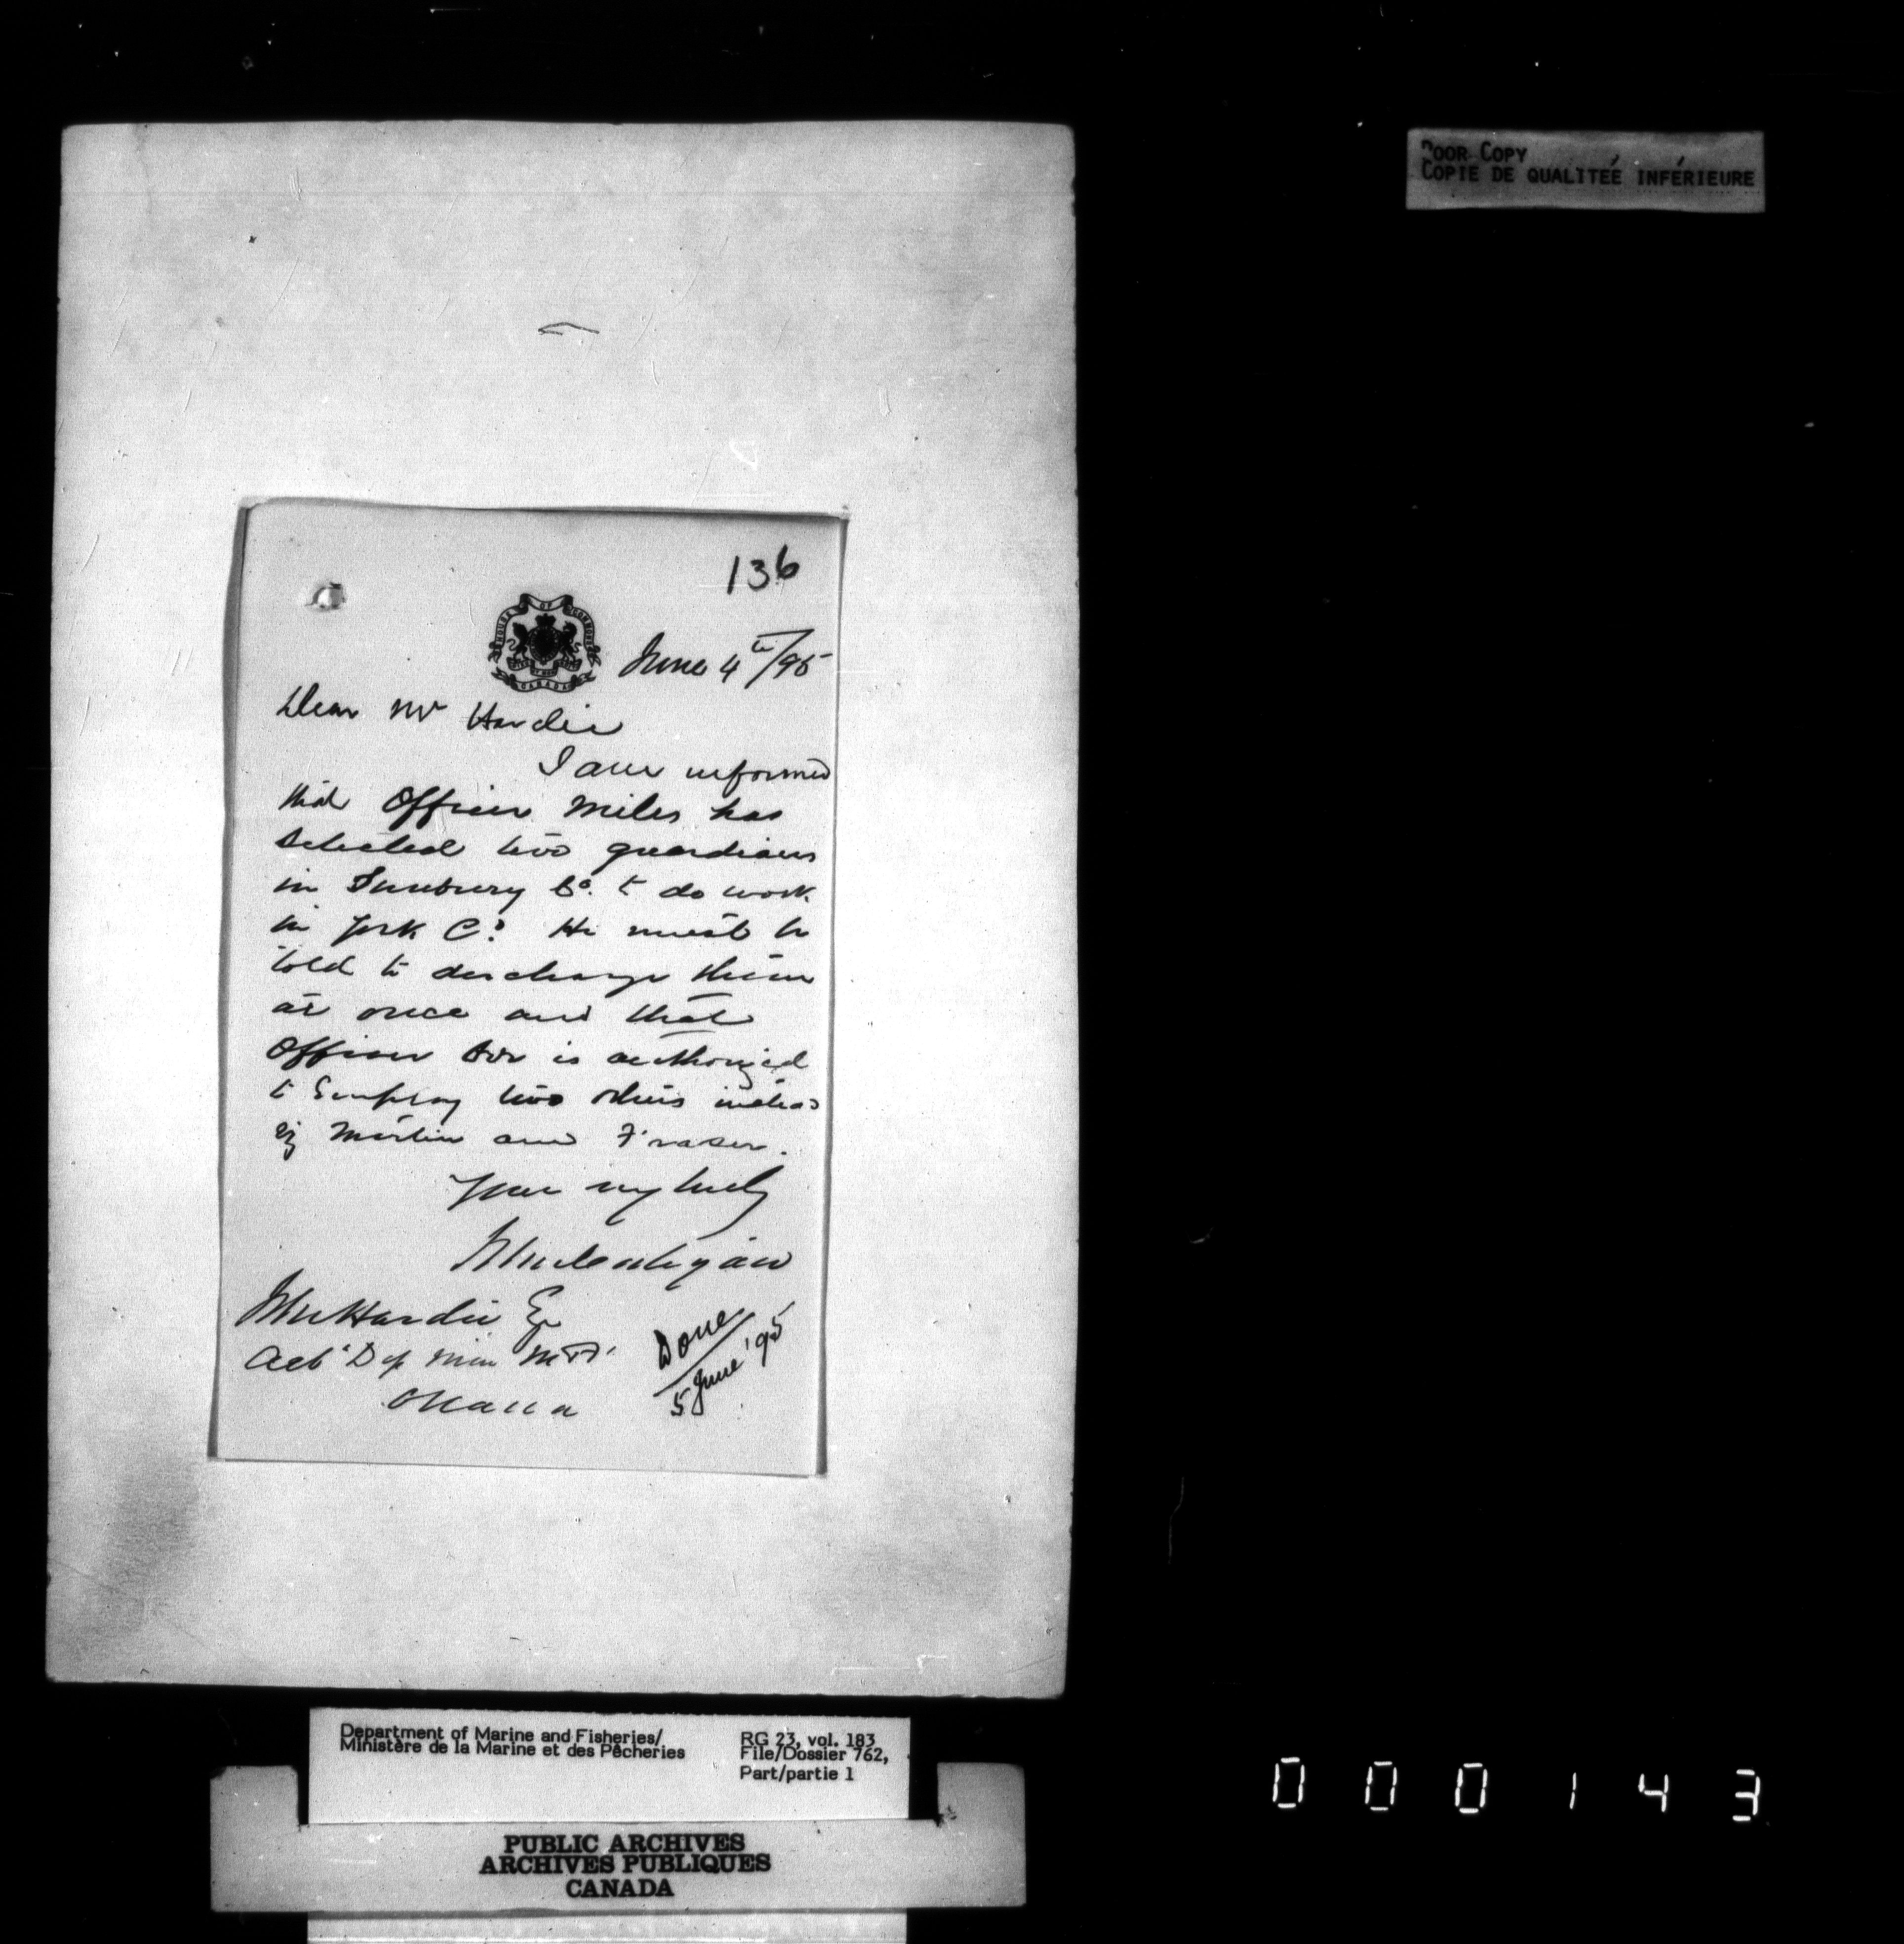 POOR COPY
COPIE DE QUALITEÉ INFÉRIEURE
136
HOUSE OF COMMONS
CANADA
June 4th/95
Dear Mr Hardie
I am informed
that Officer Miles has
selected two guardians
in Sunbury Co. to do work
in York Co. He must be
told to discharge them
at once and that
Officer Orr is authorized
to Employ two others instead
viz Martin and Fraser.
Yours very truly
John Hardie Esq
Actg Dep Min M & F.
Ottawa
Done
5 June '95
Department of Marine and Fisheries/
Ministère de la Marine et des Pêcheries
RG 23, vol. 183
File/Dossier 762,
Part/partie 1
PUBLIC ARCHIVES
ARCHIVES PUBLIQUES
CANADA
000143